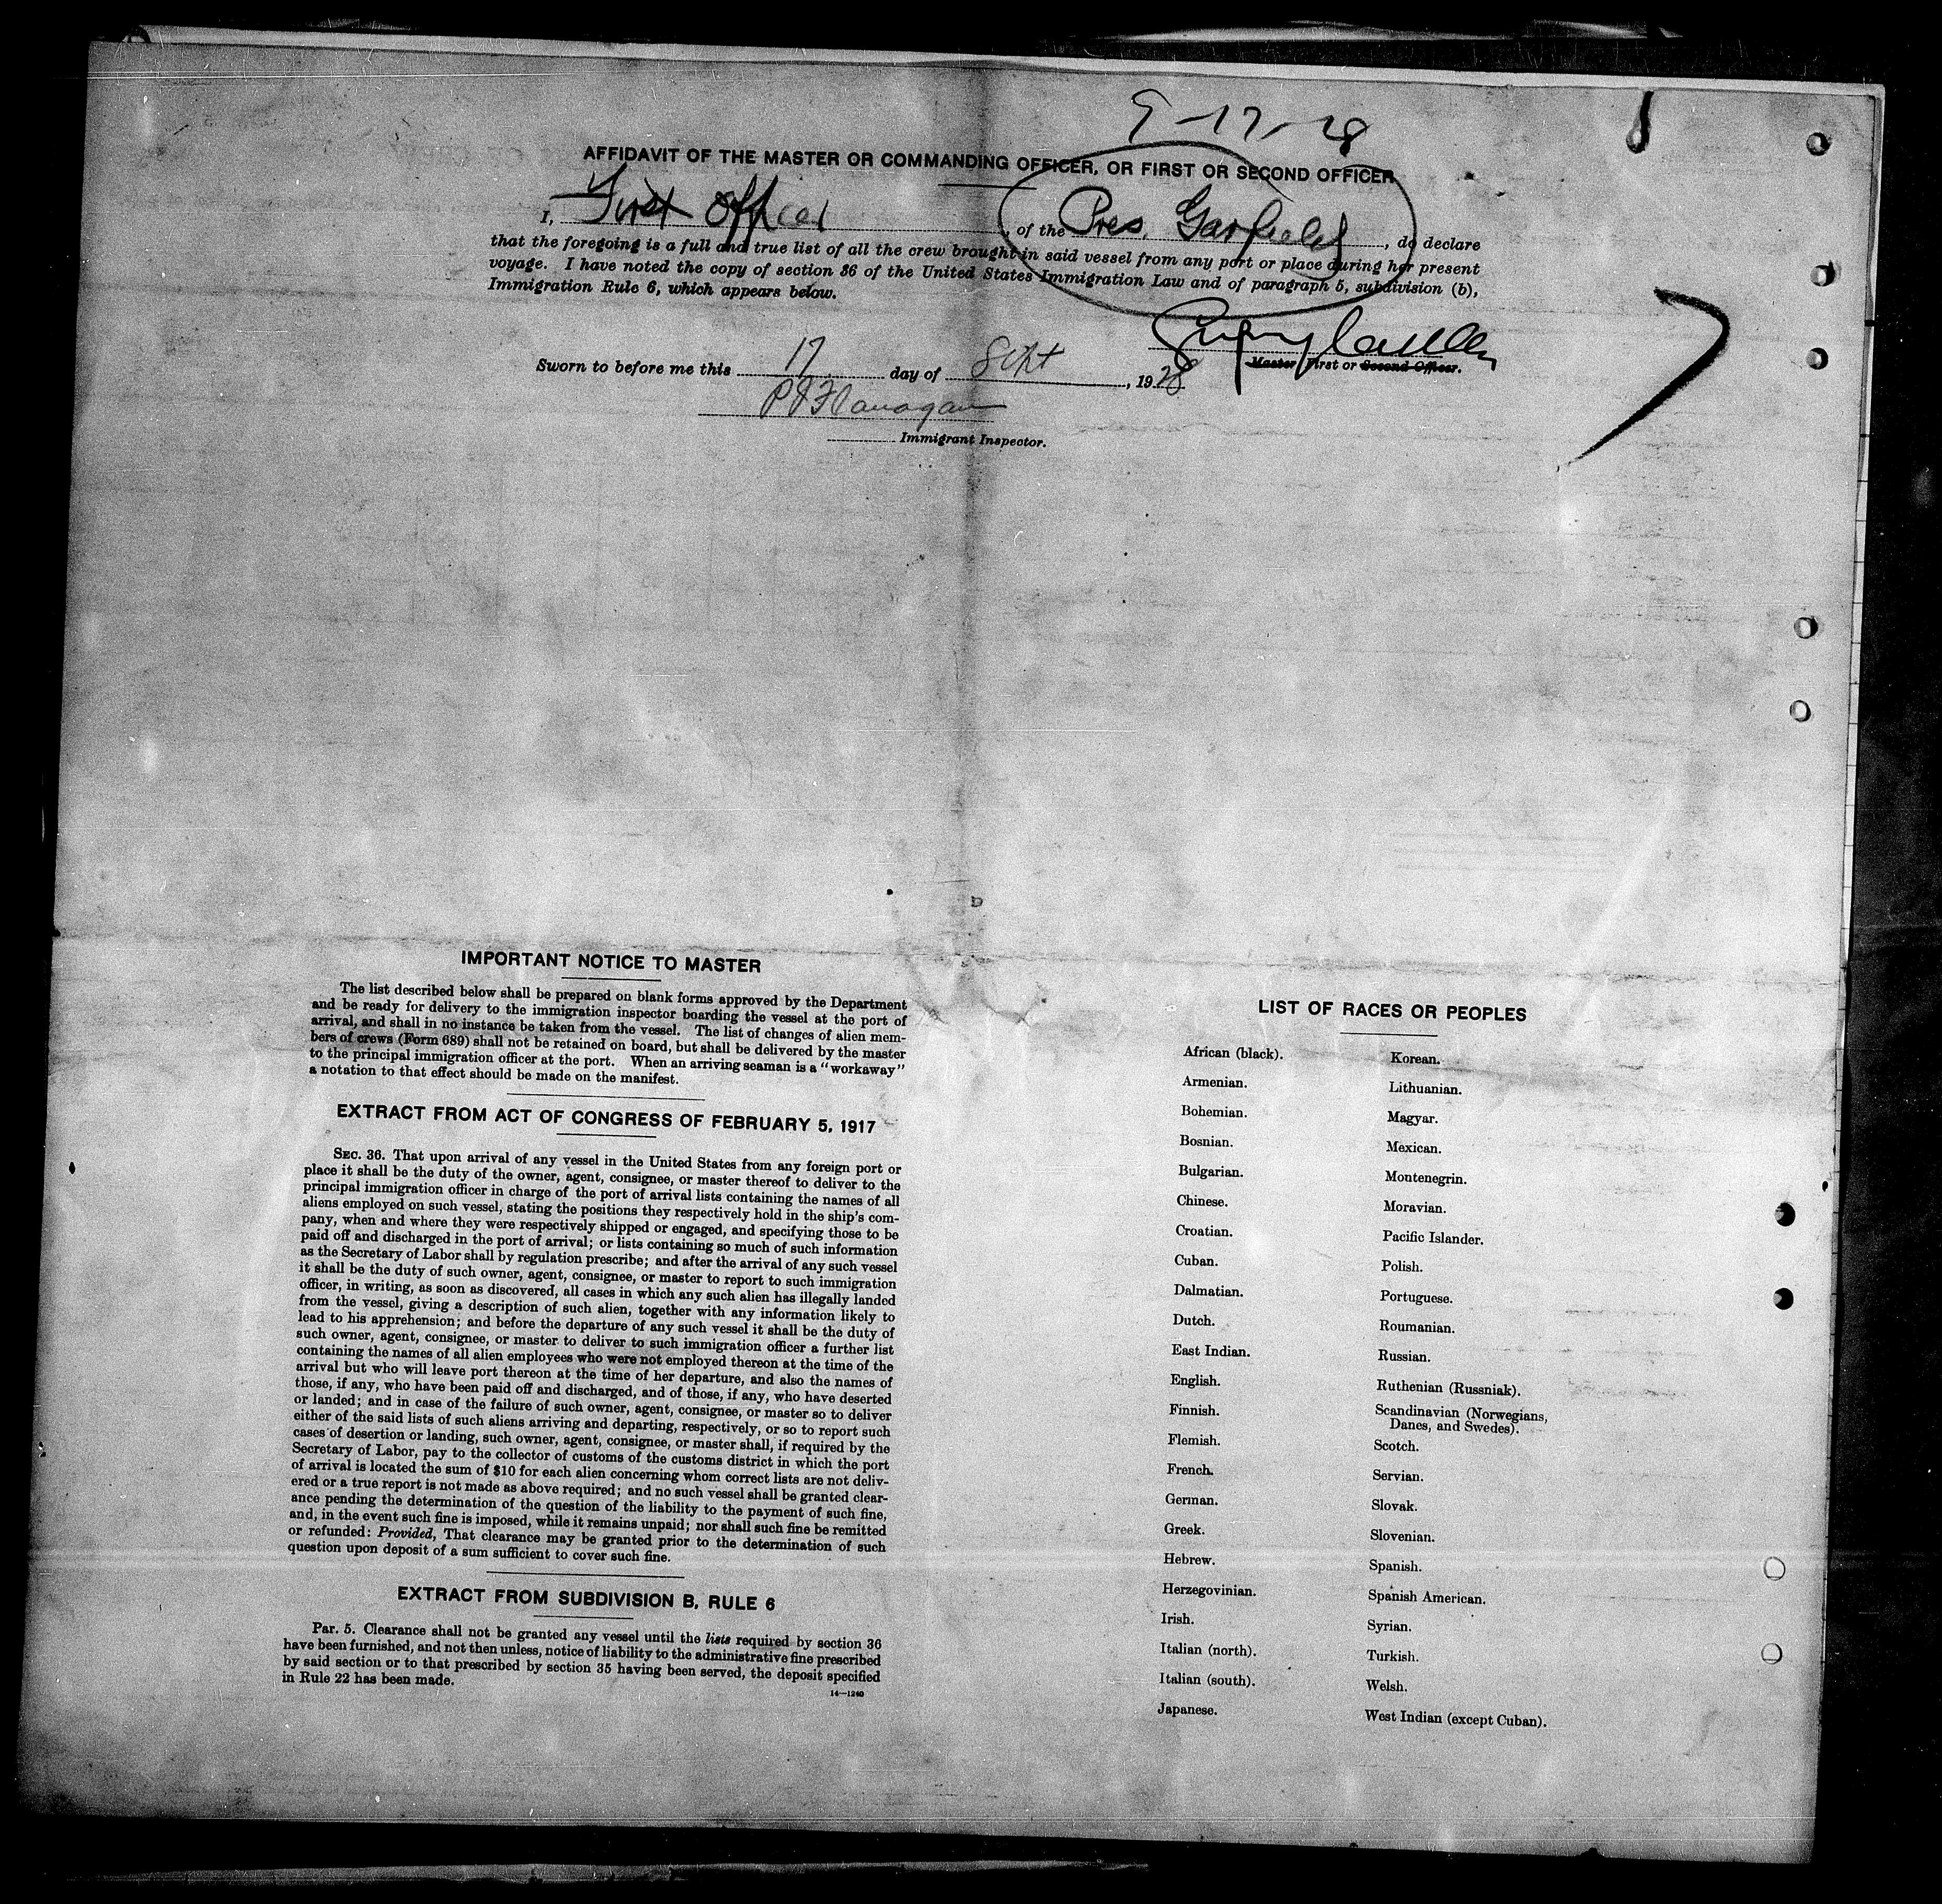 9-17-28
AFFIDAVIT OF THE MASTER OR COMMANDING OFFICER, OR FIRST OR SECOND OFFICER
I, First Officer, of the Pres. Garfield, do declare
that the foregoing is a full and true list of all the crew brought in said vessel from any port or place during her present
voyage. I have noted the copy of section 36 of the United States Immigration Law and of paragraph 5, subdivision (b),
Immigration Rule 6, which appears below.
Master First or Second Officer.
Sworn to before me this 17 day of Sept, 1928
P J Flanagan
Immigrant Inspector.
IMPORTANT NOTICE TO MASTER
The list described below shall be prepared on blank forms approved by the Department
and be ready for delivery to the immigration inspector boarding the vessel at the port of
arrival, and shall in no instance be taken from the vessel. The list of changes of alien mem-
bers of crews (Form 689) shall not be retained on board, but shall be delivered by the master
to the principal immigration officer at the port. When an arriving seaman is a "workaway"
a notation to that effect should be made on the manifest.
EXTRACT FROM ACT OF CONGRESS OF FEBRUARY 5, 1917
SEC. 36. That upon arrival of any vessel in the United States from any foreign port or
place it shall be the duty of the owner, agent, consignee, or master thereof to deliver to the
principal immigration officer in charge of the port of arrival lists containing the names of all
aliens employed on such vessel, stating the positions they respectively hold in the ship's com-
pany, when and where they were respectively shipped or engaged, and specifying those to be
paid off and discharged in the port of arrival; or lists containing so much of such information
as the Secretary of Labor shall by regulation prescribe; and after the arrival of any such vessel
it shall be the duty of such owner, agent, consignee, or master to report to such immigration
officer, in writing, as soon as discovered, all cases in which any such alien has illegally landed
from the vessel, giving a description of such alien, together with any information likely to
lead to his apprehension; and before the departure of any such vessel it shall be the duty of
such owner, agent, consignee, or master to deliver to such immigration officer a further list
containing the names of all alien employees who were not employed thereon at the time of the
arrival but who will leave port thereon at the time of her departure, and also the names of
those, if any, who have been paid off and discharged, and of those, if any, who have deserted
or landed; and in case of the failure of such owner, agent, consignee, or master so to deliver
either of the said lists of such aliens arriving and departing, respectively, or so to report such
cases of desertion or landing, such owner, agent, consignee, or master shall, if required by the
Secretary of Labor, pay to the collector of customs of the customs district in which the port
of arrival is located the sum of $10 for each alien concerning whom correct lists are not deliv-
ered or a true report is not made as above required; and no such vessel shall be granted clear-
ance pending the determination of the question of the liability to the payment of such fine,
and, in the event such fine is imposed, while it remains unpaid; nor shall such fine be remitted
or refunded: Provided, That clearance may be granted prior to the determination of such
question upon deposit of a sum sufficient to cover such fine.
EXTRACT FROM SUBDIVISION B, RULE 6
Par. 5. Clearance shall not be granted any vessel until the lists required by section 36
have been furnished, and not then unless, notice of liability to the administrative fine prescribed
by said section or to that prescribed by section 35 having been served, the deposit specified
in Rule 22 has been made.
14—1240
LIST OF RACES OR PEOPLES
African (black).
Armenian.
Bohemian.
Bosnian.
Bulgarian.
Chinese.
Croatian.
Cuban.
Dalmatian.
Dutch.
East Indian.
English.
Finnish.
Flemish.
French.
German.
Greek.
Hebrew.
Herzegovinian.
Irish.
Italian (north).
Italian (south).
Japanese.
Korean.
Lithuanian.
Magyar.
Mexican.
Montenegrin.
Moravian.
Pacific Islander.
Polish.
Portuguese.
Roumanian.
Russian.
Ruthenian (Russniak).
Scandinavian (Norwegians,
Danes, and Swedes).
Scotch.
Servian.
Slovak.
Slovenian.
Spanish.
Spanish American.
Syrian.
Turkish.
Welsh.
West Indian (except Cuban).